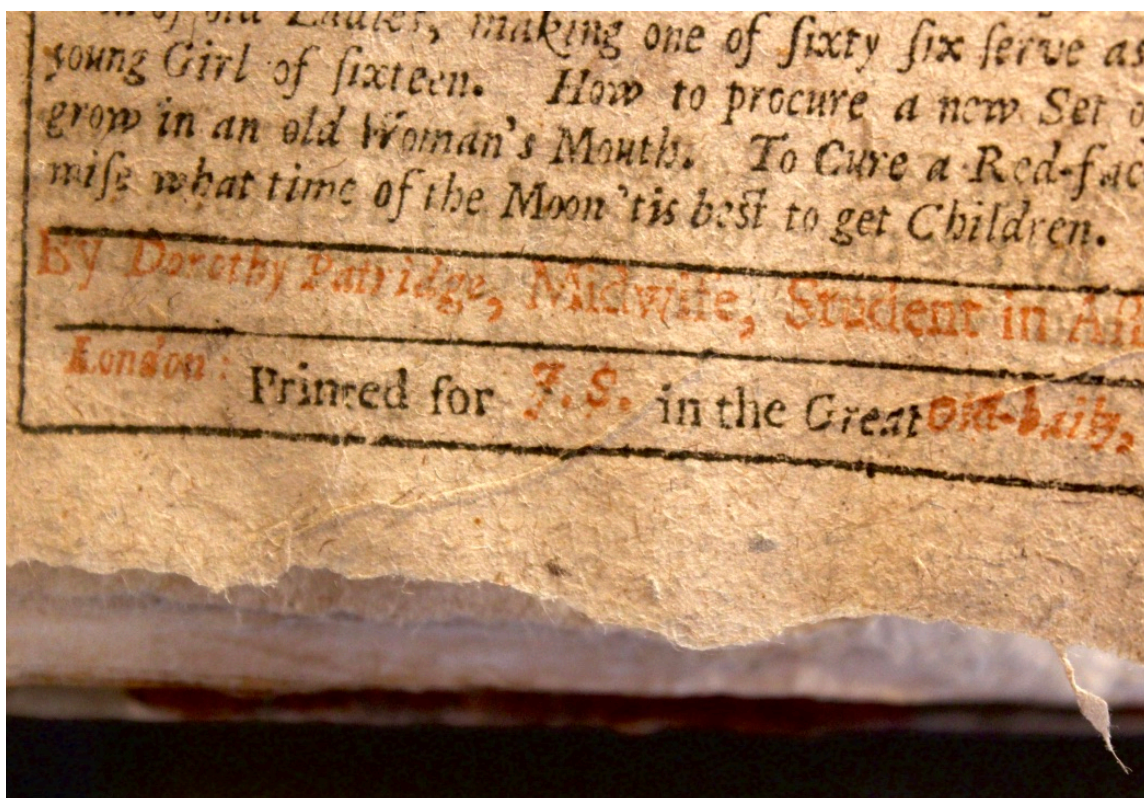 of old Ladies, making one of ſixty ſix ſerve as
young Girl of ſixteen. How to procure a new Set
grow in an old Woman's Mouth. To Cure a Red-fac
miſe what time of the Moon 'tis beſt to get Children.
By Dorothy Patridge, Midwife, Student in Aſt
London: Printed for J. S. in the Great Old-baily,